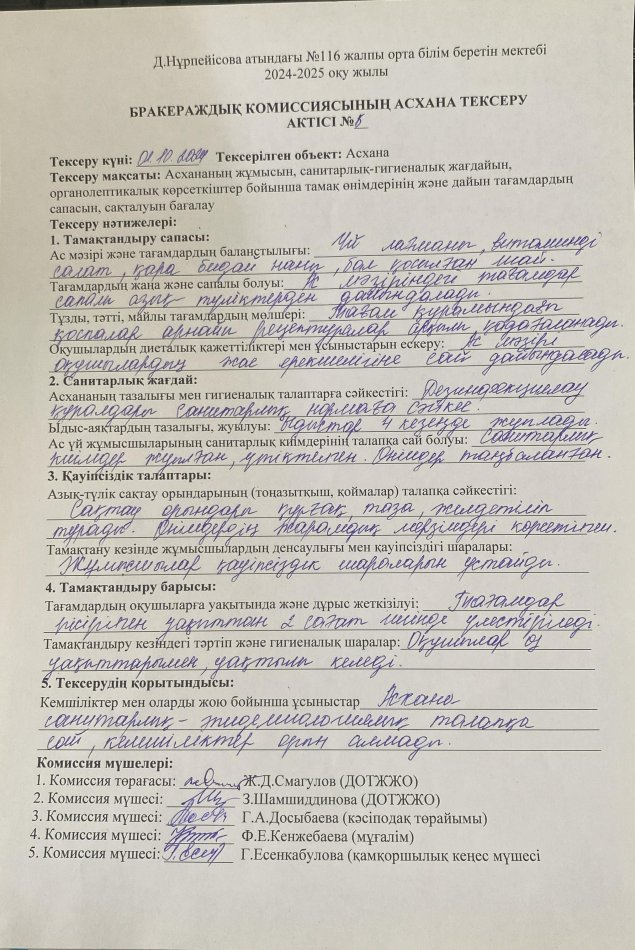 Д.Нұрпейісова атындағы №116 жалпы орта білім беретін мектебі
2024-2025 оқу жылы
БРАКЕРАЖДЫҚ КОМИССИЯСЫНЫҢ АСХАНА ТЕКСЕРУ
АКТІСІ №5
Тексеру күні: 02.10.2024 Тексерілген объект: Асхана
Тексеру мақсаты: Асхананың жұмысын, санитарлық-гигиеналық жағдайын,
органолептикалық көрсеткіштер бойынша тамақ өнімдерінің және дайын тағамдардың
сапасын, сақталуын бағалау
Тексеру нәтижелері:
1. Тамақтандыру сапасы:
Ас мәзірі және тағамдардың балансtылығы: Үй лағманы, витаминді
салат, қара бидай наны, бал қосылған шай.
Тағамдардың жаңа және сапалы болуы: Ас мәзіріндегі тағамдар
сапалы азық түліктерден дайындалады.
Тұзды, тәтті, майлы тағамдардың мөлшері: Тағам құрамындағы
қоспалар арнайы рецептуралар арқылы қадағаланады.
Оқушылардың диеталық қажеттіліктері мен ұсыныстарын ескеру: Ас мәзірі
оқушылардың жас ерекшелігіне сай дайындалады.
2. Санитарлық жағдай:
Асхананың тазалығы мен гигиеналық талаптарға сәйкестігі: Дезинфекциялау
құралдары санитарлық нормаға сәйкес.
Ыдыс-аяқтардың тазалығы, жуылуы: Ыдыстар 4 кезеңде жуылады.
Ас үй жұмысшыларының санитарлық киімдерінің талапқа сай болуы: Санитарлық
киімдер жуылған, үтіктелген. Өнімдер таңбаланған.
3. Қауіпсіздік талаптары:
Азық-түлік сақтау орындарының (тоңазытқыш, қоймалар) талапқа сәйкестігі:
Сақтау орындары құрғақ, таза, желдетіліп
тұрады. Өнімдердің жарамдық мерзімдері көрсетілген.
Тамақтану кезінде жұмысшылардың денсаулығы мен қауіпсіздігі шаралары:
Жұмысшылар қауіпсіздік шараларын ұстайды.
4. Тамақтандыру барысы:
Тағамдардың оқушыларға уақытында және дұрыс жеткізілуі: Тағамдар
пісірілген уақыттан 2 сағат ішінде үлестіріледі.
Тамақтандыру кезіндегі тәртіп және гигиеналық шаралар: Оқушылар өз
уақыттарымен, уақтылы келеді.
5. Тексерудің қорытындысы:
Кемшіліктер мен оларды жою бойынша ұсыныстар Асхана
санитарлық-эпидемиологиялық талапқа
сай, кемшіліктер орын алмады.
Комиссия мүшелері:
1. Комиссия төрағасы: Ж.Д.Смагулов (ДОТЖЖО)
2. Комиссия мүшесі: З.Шамшиддинова (ДОТЖЖО)
3. Комиссия мүшесі: Г.А.Досыбаева (кәсіподақ төрайымы)
4. Комиссия мүшесі: Ф.Е.Кенжебаева (мұғалім)
5. Комиссия мүшесі: Г.Есенкабулова (қамқоршылық кеңес мүшесі